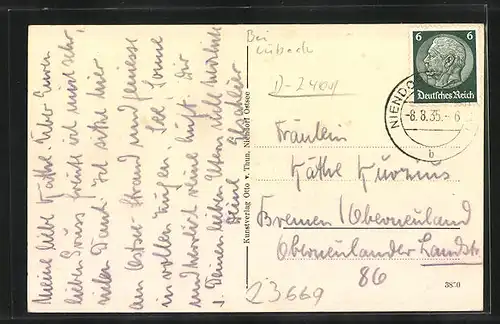 Meine liebe Käthe. Über Euren
lieben Gruss freute ich mich sehr,
vielen Dank. Ich sitze hier
am Ostsee-Strand und geniesse
in vollen Zügen See, Sonne
und herrlich reine Luft. Dir
u. Deinen lieben Eltern viele herzliche
Deine
Bei
Lübeck
D-2409
Kunstverlag Otto v. Thun, Niendorf Ostsee
6 6
Deutsches Reich
NIENDO
-8.8.35.-6
b
Fräulein
Käthe
Bremen/Oberneuland
Oberneulander Landstr
86
23669
3870